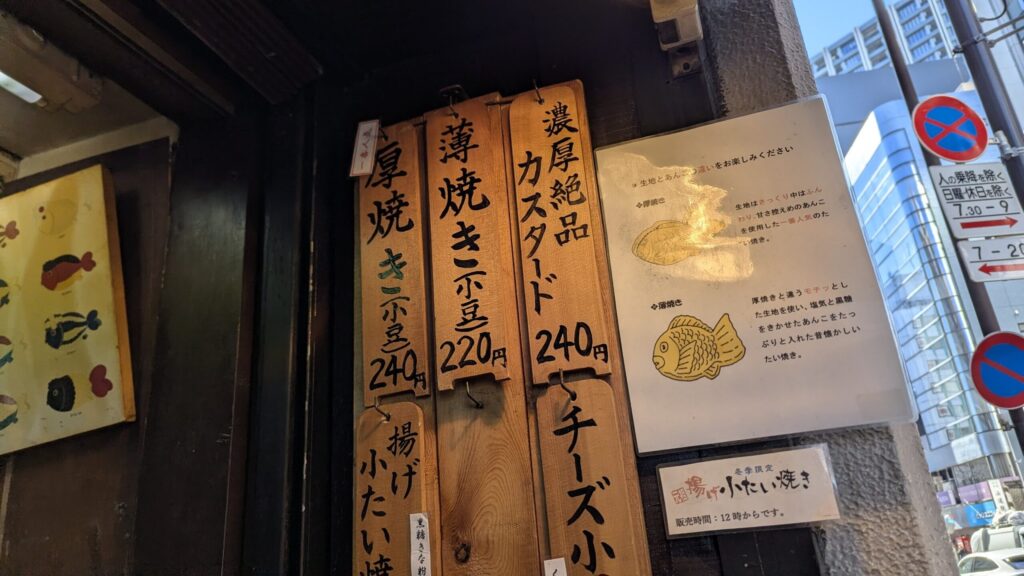 厚焼き(小豆)
240円
薄焼き(小豆)
220円
濃厚絶品
カスタード
240円
揚げ
小たい焼
黒糖きな粉
チーズ小
く
生地とあんの違いをお楽しみください
❖厚焼き
生地はさっくり中はふん
わり、甘さ控えめのあんこ
を使用した一番人気のた
い焼き。
❖薄焼き
厚焼きと違うモチッとし
た生地を使い、塩気と黒糖
をきかせたあんこをたっ
ぷりと入れた昔懐かしい
たい焼き。
冬季限定
揚げ小たい焼き
販売時間:12時からです。
人の乗降を除く
日曜・休日を除く
7.30-9
7-20